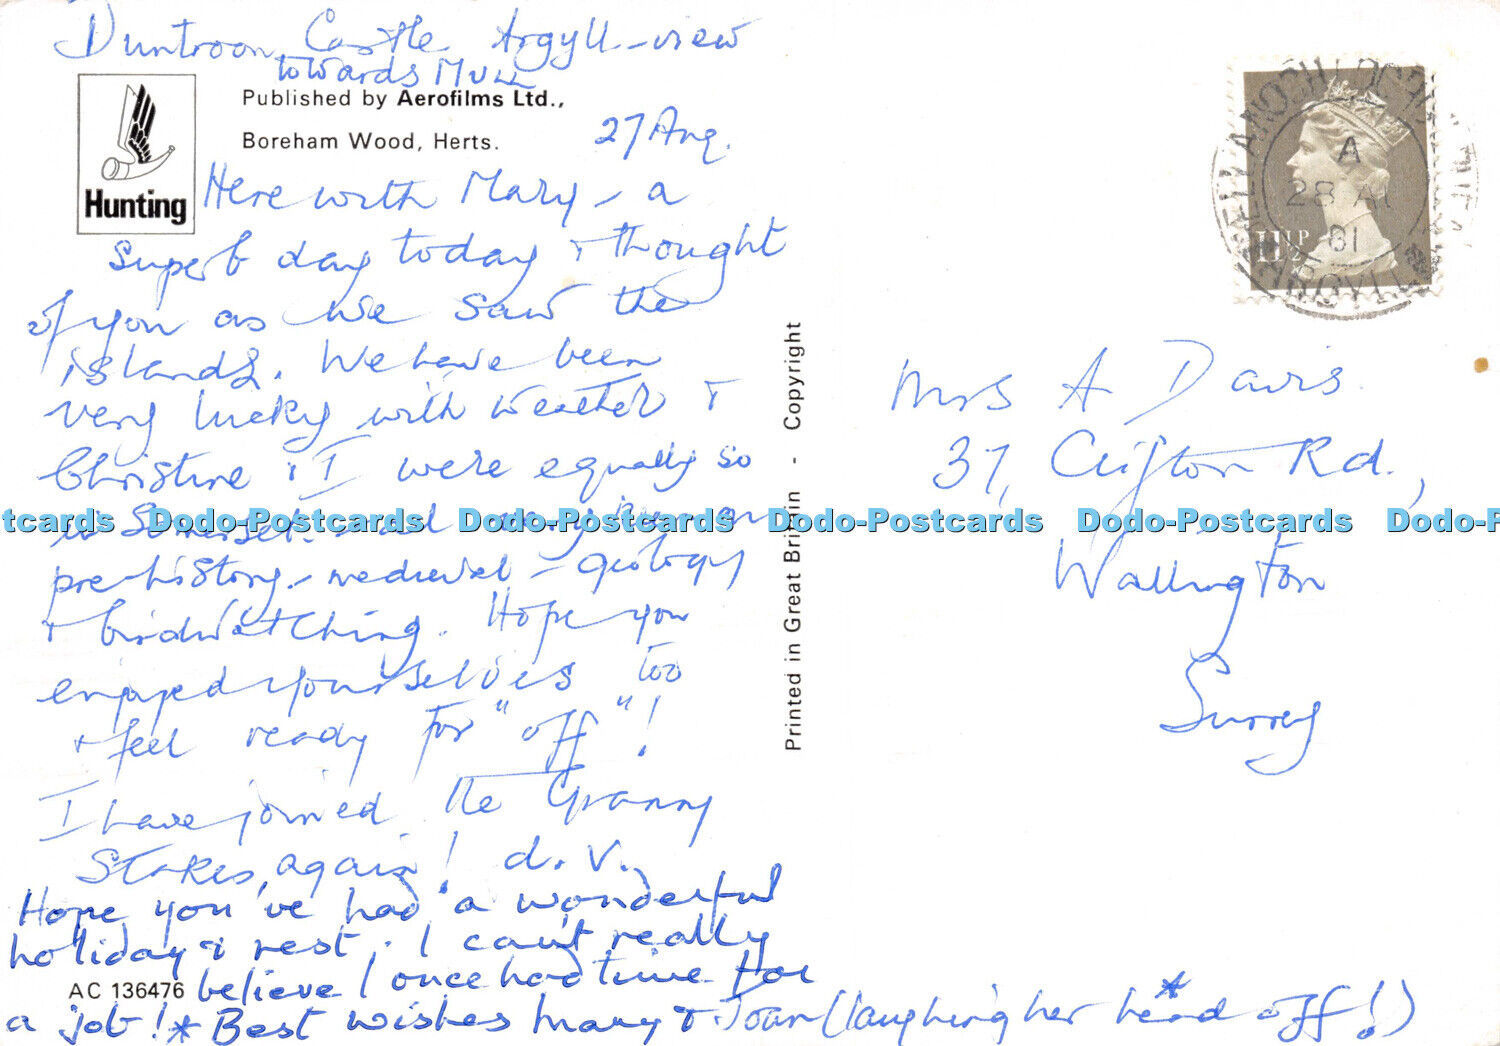 Duntroon Castle Argyll - view
towards Mull
Published by Aerofilms Ltd.,
Boreham Wood, Herts.
27 Aug.
Hunting
Here with Mary - a
superb day today & thought
of you as we saw the
islands. We have been
very lucky with weather &
Christine & I were equally so
in Somerset.
prehistory - medieval - geology
& birdwatching. Hope you
enjoyed yourselves too
& feel ready for "off"!
I have joined the Granny
Stakes, again! d.V.
Hope you've had a wonderful
holiday & rest. I can't really
believe I once had time for
a job! * Best wishes Mary & Joan (laughing her head* off!)
AC 136476
Printed in Great Britain - Copyright
A
28 AU
81
ARGYLL
11½P
Mrs A Davis
37, Clifton Rd.,
Wallington
Surrey
tcards Dodo-Postcards Dodo-Postcards Dodo-Postcards Dodo-Postcards Dodo-P